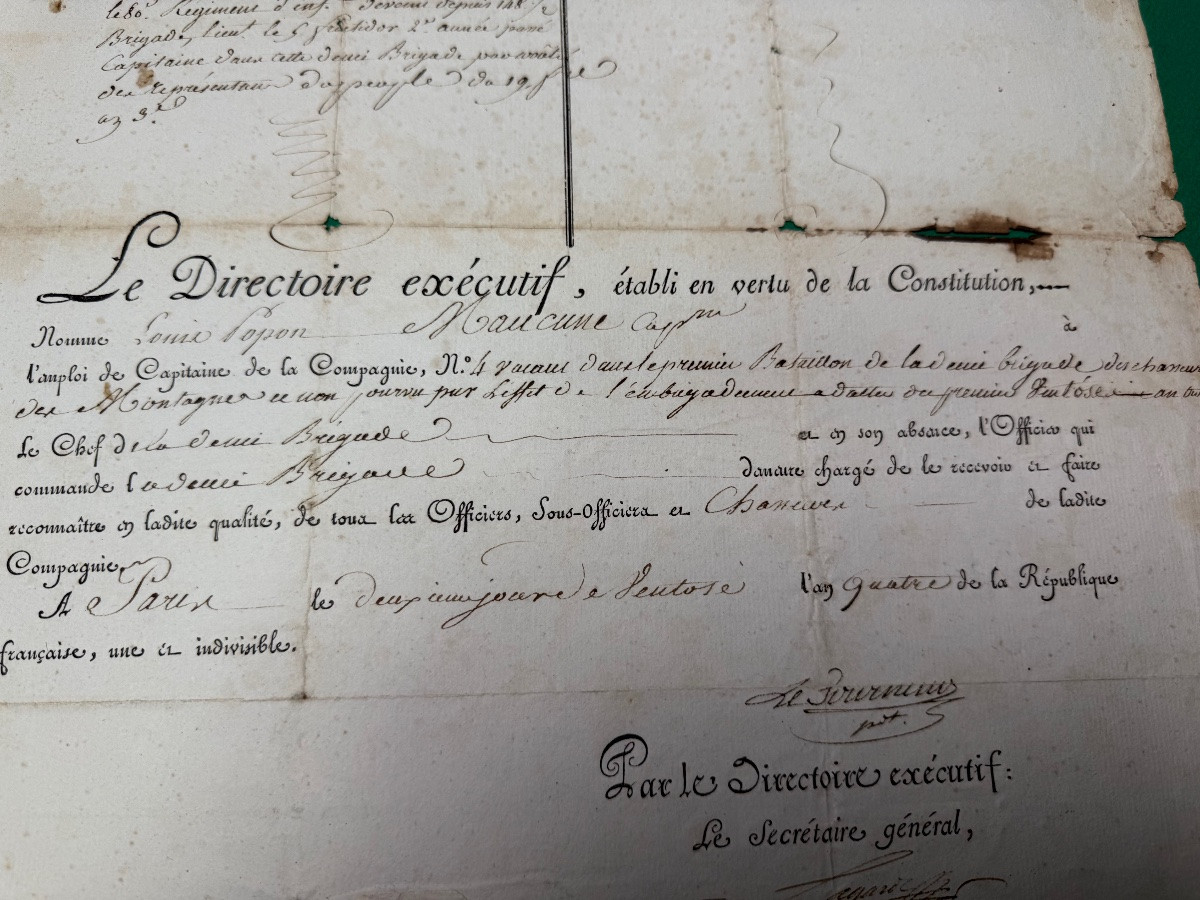 le 80e. Régiment d'inf. devenu depuis 148e 1/2
Brigade, lieut. le 5 fructidor 2e. année passé
Capitaine dans cette demi Brigade par arrêté
des représentans du peuple du 19
an 3e.
Le Directoire exécutif, établi en vertu de la Constitution,
Nomme Louis Popon Maucune Capne à
l'emploi de Capitaine de la Compagnie, No. 4 vacant dans le premier Bataillon de la demi brigade des chasseurs
des Montagnes et non pourvu par l'effet de l'embrigadement a datter du premier Ventôse an
Le Chef de la demi Brigade et en son absence, l'Officier qui
commande la demi Brigade demeure chargé de le recevoir et faire
reconnaître en ladite qualité, de tous les Officiers, Sous-Officiers et Chasseurs de ladite
Compagnie.
A Paris le deuxieme jour de Ventose l'an quatre de la République
française, une et indivisible.
Le Tourneur
pdt.
Par le Directoire exécutif:
Le Secrétaire général,
Lagarde